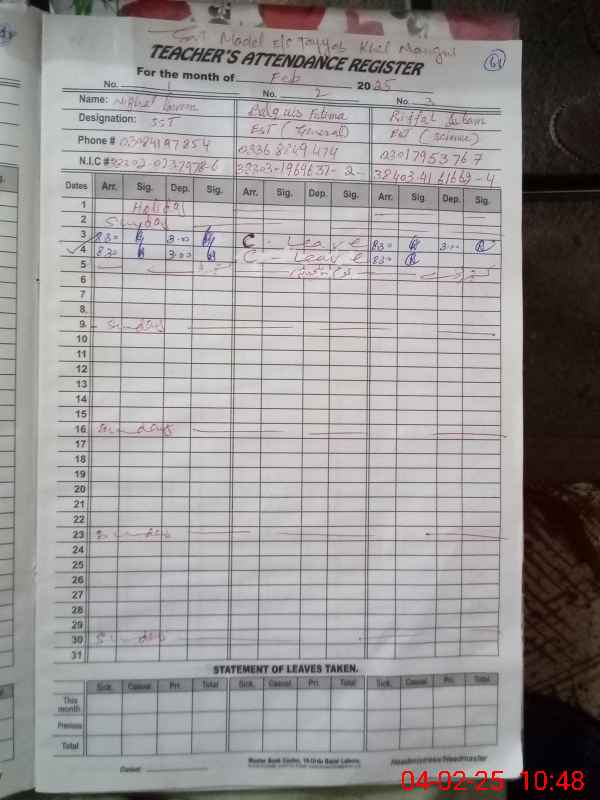 Govt Model E/S Tayyab Khel Mangni
TEACHER'S ATTENDANCE REGISTER
For the month of Feb 2025
No. 1 No. 2 No. 3
Name: Bilquis Fatima
Designation: SST EST (General) EST (Science)
Phone # 03084197854 03368249474 03017953767
N.I.C # 38303-1969637-2
Dates Arr. Sig. Dep. Sig. Arr. Sig. Dep. Sig. Arr. Sig. Dep. Sig.
1 Holiday
2 Sunday
3 8:30 3:00 C - Leave 8:30 3:00
4 8:30 3:00 C - Leave 8:30
5
6
7
8
9 Sunday
10
11
12
13
14
15
16 Sunday
17
18
19
20
21
22
23 Sunday
24
25
26
27
28
29
30 Sunday
31
STATEMENT OF LEAVES TAKEN.
Sick. Casual Pri. Total Sick. Casual Pri. Total Sick. Casual Pri. Total
This month
Previous
Total
Dated:
Master Book Centre, 19-Urdu Bazar Lahore.
Headmistress/Headmaster
04-02-25 10:48